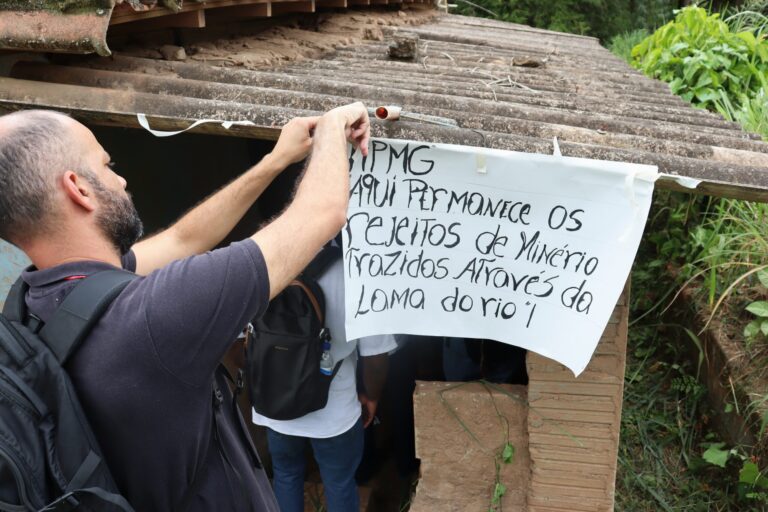 MPMG
AQUI PERMANECE OS
rejeitos de Minério
TrAzidos Através da
LAMA do rio"!